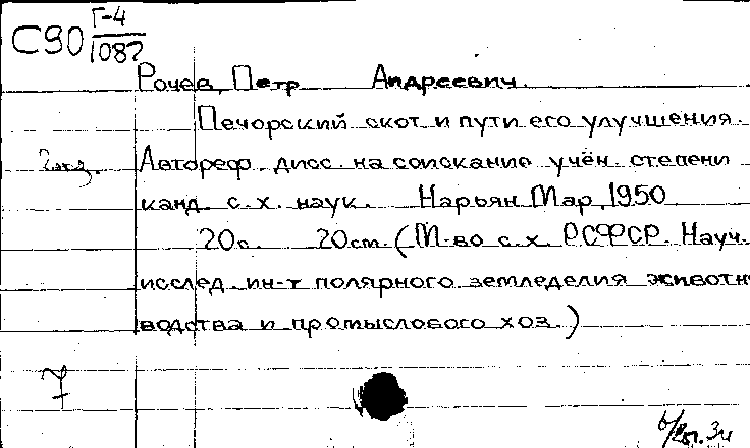 С90 Г-4
1082
Рочев, Петр Андреевич.
Печорский скот и пути его улучшения.
2 экз. Автореф. дисс. на соискание учён. степени
канд. с.х. наук. Нарьян Мар, 1950
20с. 20см. (М-во с.х. РСФСР. Науч.
исслед. ин-т полярного земледелия животн
водства и промыслового хоз.)
7